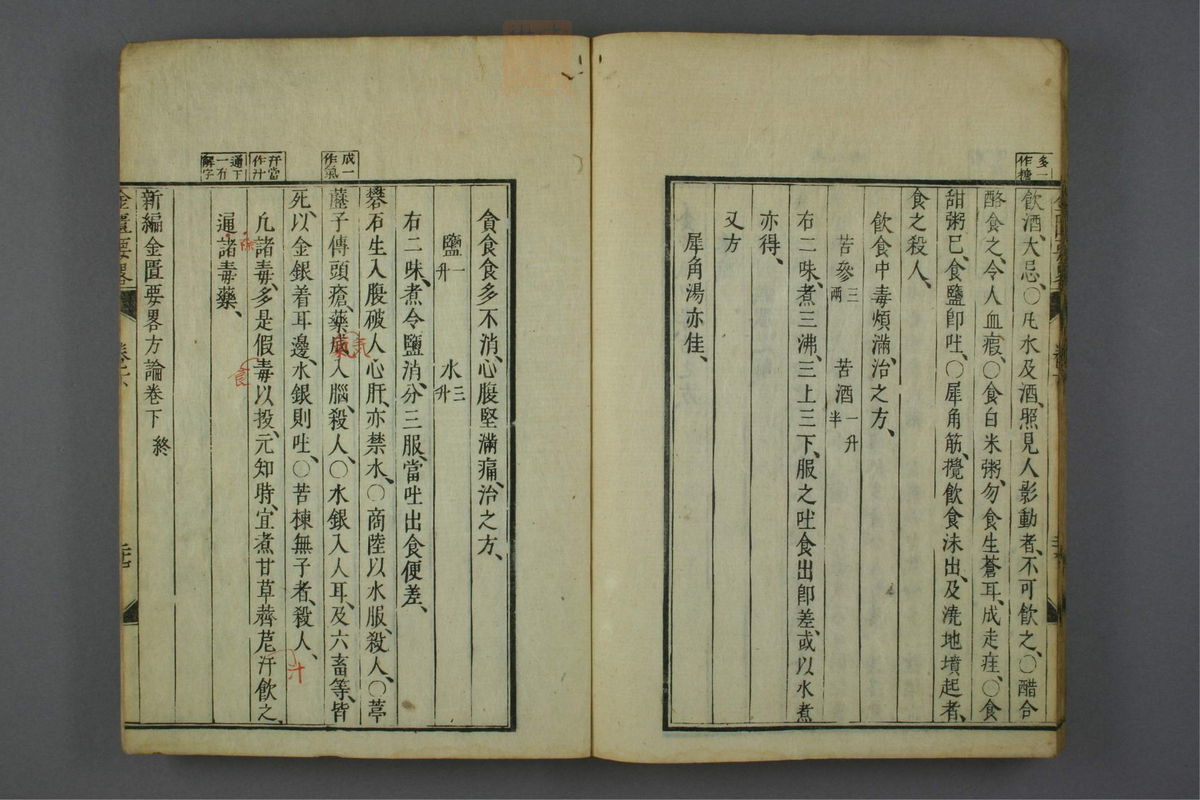 多一作糖
飲酒、大忌、〇凡水及酒、照見人影動者、不可飲之、〇醋合
酪食之、令人血瘕、〇食白米粥、勿食生蒼耳、成走疰、〇食
甜粥已、食鹽卽吐、〇犀角筋、攪飲食沫出、及澆地墳起者、
食之殺人、
飲食中毒煩滿、治之方、
苦參三兩 苦酒一升半
右二味、煮三沸、三上三下、服之吐食出卽差、或以水煮
亦得、
又方
犀角湯亦佳、
貪食食多不消、心腹堅滿痛、治之方、
鹽一升 水三升
右二味、煮令鹽消、分三服、當吐出食便差、
礬石生入腹、破人心肝、亦禁水、〇商陸以水服、殺人、〇葶
成一作氣
藶子傅頭瘡、藥成入腦、殺人、〇水銀入人耳、及六畜等、皆
气
死、以金銀着耳邊、水銀則吐、〇苦楝無子者、殺人、
汗當作汁
凡諸毒、多是假毒以投、元知時、宜煮甘草薺苨汗飲之、
食
汁
通下一有解字
通諸毒藥、
新編金匱要畧方論卷下 終
金匱要畧